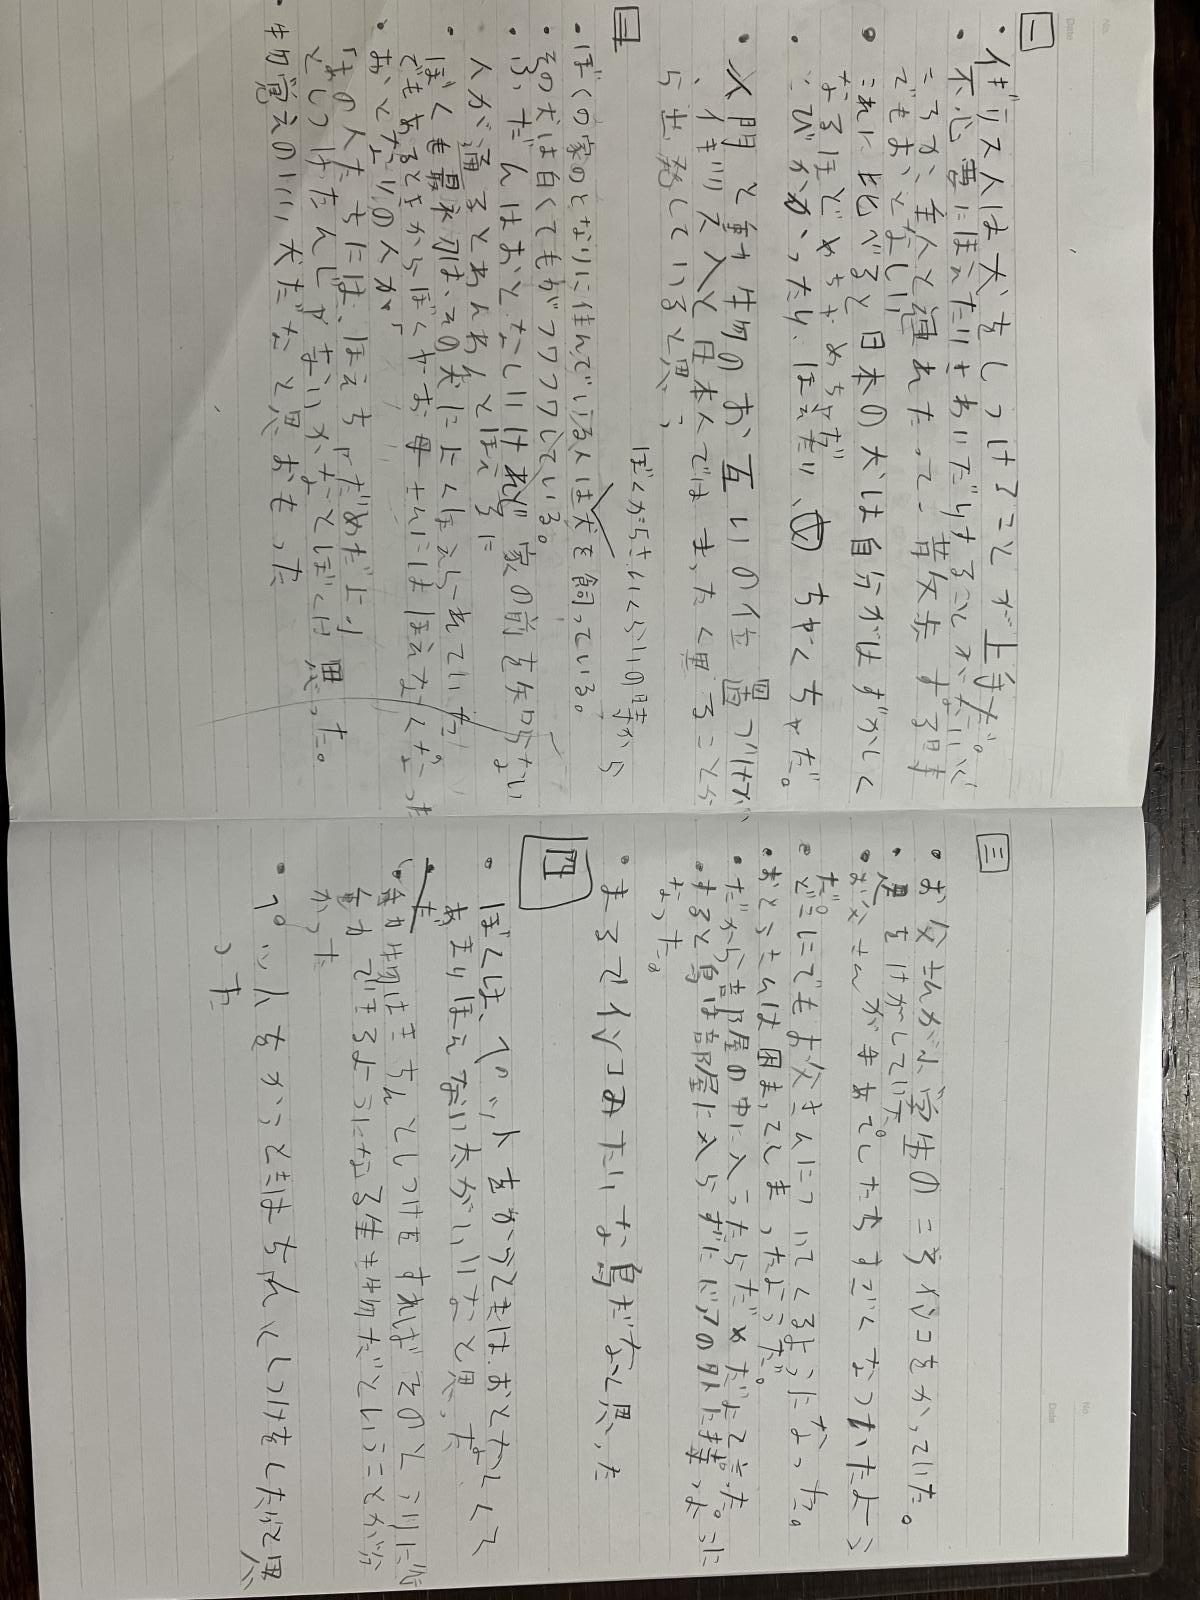 一
・イギリス人は犬をしつけることが上手だ。
・不必要にほえたりさわいだりすることがないど
ころか、主人と連れだって一苦散歩する時
でもおとなしい。
・これに比べると日本の犬は自分がはずかしく
なるほどめちゃめちゃだ
・とびかかったり、ほえたり、ちゃくちゃだ。
・人間と動物のお互いの位置づけが
、イギリス人と日本人ではまったく異ることか
ら出発していると思う
二
ぼくが5さいくらいの時から
・ぼくの家のとなりに住んでいる人は犬を飼っている。
・その犬は白くてもがフワフワしている。
・ふだんはおとなしいけれど家の前を知らない
人が通るとわんわんとほえるに
・ぼくも最初は、その犬によくほえられていた
でもあるときからぼくやお母さんにはほえなくなった
・おとなりの人が「
「あの人たちには、ほえちゃだめだよ」
としつけたんじゃないかなとぼくは思った。
・物覚えのいい犬だなと思おもった
三
・お父さんが小学生のころインコをかっていた。
・足をけがしていた
・お父さんが手あてしたらすごくなついたよう
だ。
・どこにでもお父さんについてくるようになった。
・おとうさんは困ってしまったようだ。
・だから部屋の中に入ったらだめだよと言った
・すると鳥は部屋に入らずにドアの外で待つように
なった。
・まるでインコみたいな鳥だなと思った
四
・ぼくは、ペットをかうときは、おとなしくて
あまりほえない犬がいいなと思った
・動物はきちんとしつけをすればそのとうりに行
動できるようになる生き物だということが分
かった
・ペットをかうときはちゃんとしつけをしたいと思
った